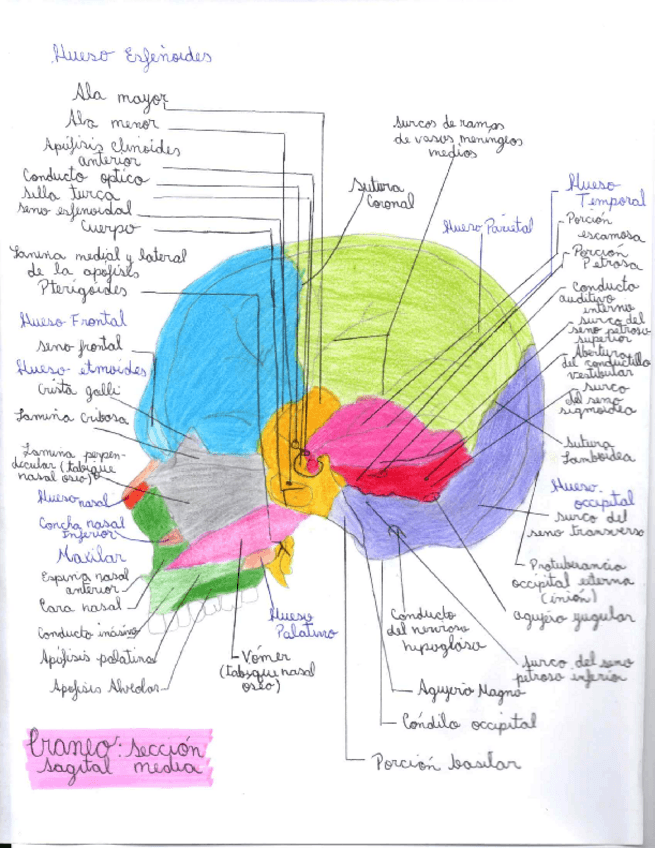 Hueso Esfenoides
Ala mayor
Ala menor
Apófisis clinoides
anterior
Conducto optico
silla turca
seno esfenoidal
Cuerpo
Lamina medial y lateral
de la apofisis
Pterigoides
Hueso Frontal
seno frontal
Hueso etmoides
Crista galli
Lamina Cribosa
Lamina perpen-
dicular (tabique
nasal oseo)
Hueso nasal
Concha nasal
Inferior
Maxilar
Espina nasal
anterior
Cara nasal
Conducto incisivo
Apófisis palatina
Apofisis Alveolar
surcos de ramas
de vasos meningeos
medios
sutura
Coronal
Hueso Parietal
Hueso
Temporal
Porción
escamosa
Porción
Petrosa
Conducto
auditivo
interno
surco del
seno petroso
superior
Abertura
del conductillo
vestibular
surco
del seno
sigmoidea
sutura
Lamboidea
Hueso
occipital
surco del
seno transverso
Protuberancia
occipital externa
(inión)
agujero yugular
surco del seno
petroso inferior
Conducto
del nervioso
hipogloso
Agujerio Magno
Cóndilo occipital
Porción basilar
Hueso
Palatino
Vómer
(tabique nasal
oseo)
Craneo: sección
sagital media